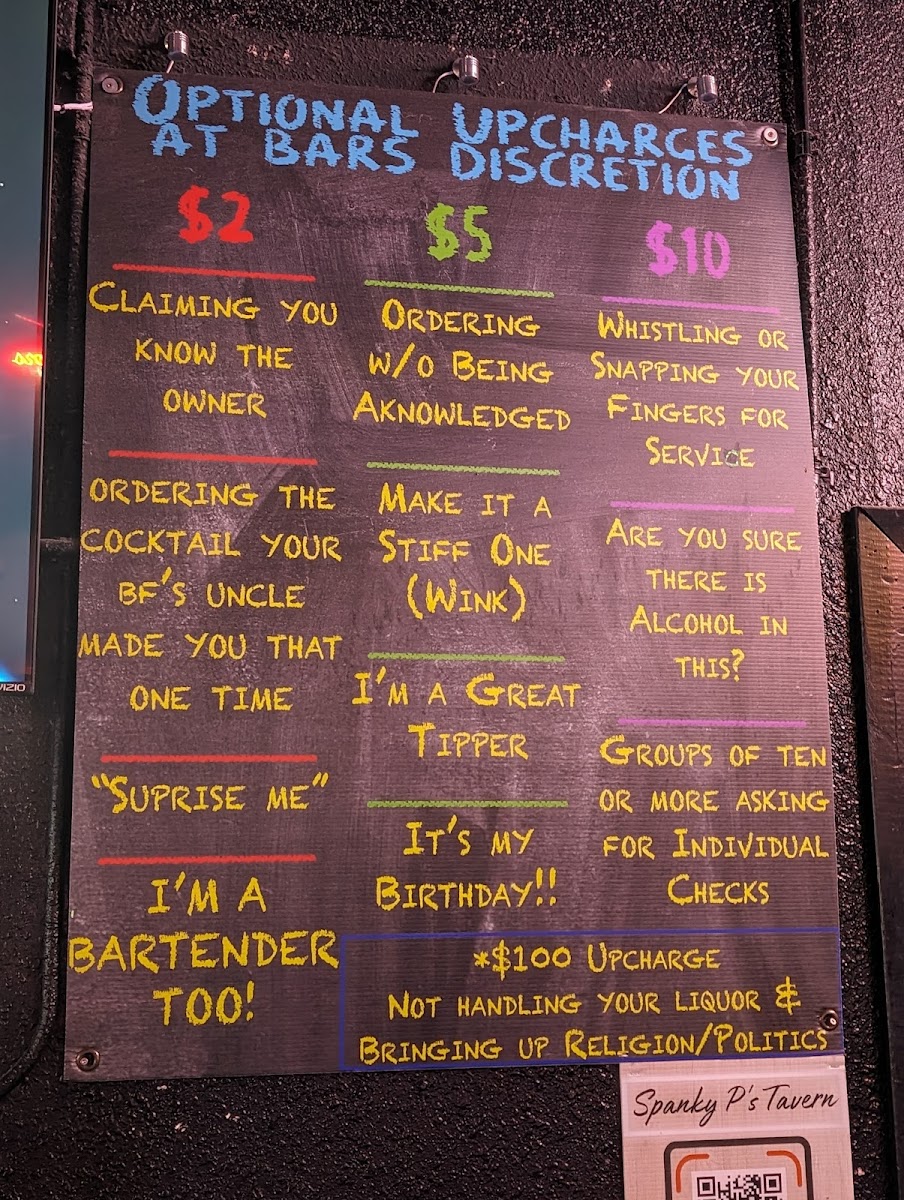 Optional Upcharges
at bars Discretion
$2
Claiming you
know the
owner
ordering the
cocktail your
bf's uncle
made you that
one time
"Suprise me"
I'm a
bartender
too!
$5
Ordering
w/o Being
Aknowledged
Make it a
Stiff One
(Wink)
I'm a Great
Tipper
It's my
Birthday!!
$10
Whistling or
Snapping your
Fingers for
Service
Are you sure
there is
Alcohol in
this?
Groups of ten
or more asking
for Individual
Checks
*$100 Upcharge
Not handling your liquor &
Bringing up Religion/Politics
Spanky P's Tavern
VIZIO